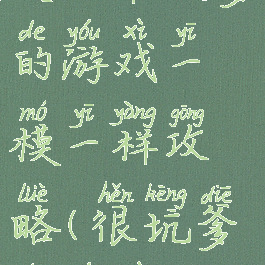 de yóu xì yī
的游戏一
mó yī yàng gōng
模一样攻
lüè hěn kēng diē
略(很坑爹